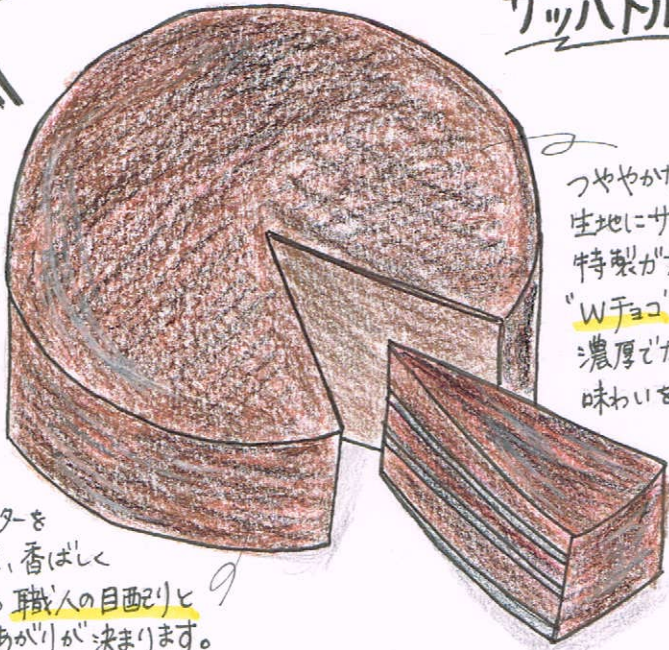 ザッハトル
つややかな
生地にサ
特製ガナ
"Wチョコ"
濃厚でカ
味わいを
ターを
、香ばしく
職人の目配りと
あがりが決まります。